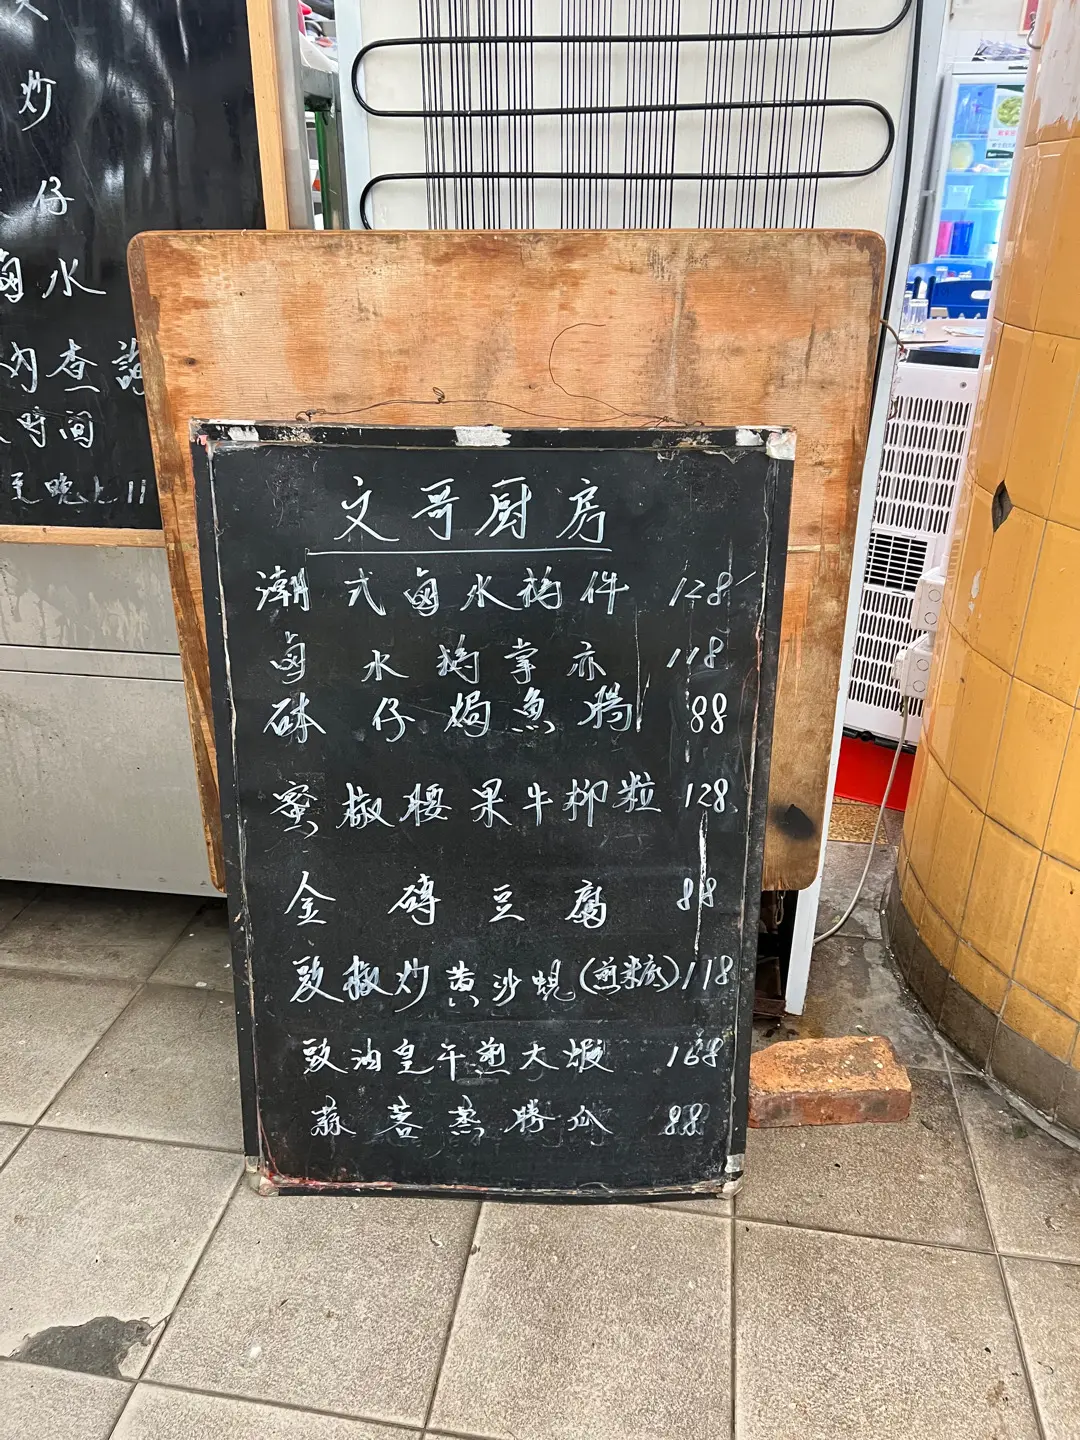 炒
仔
鹵水
內查詢
時间
至晚上11
文哥厨房
潮式鹵水拼件 128
鹵水鵝掌亦 118
砵仔焗魚腸 88
蜜椒腰果牛柳粒 128
金磚豆腐 88
豉椒炒黄沙蜆(煎米底) 118
豉油皇干煎大蝦 168
蒜茸蒸勝瓜 88